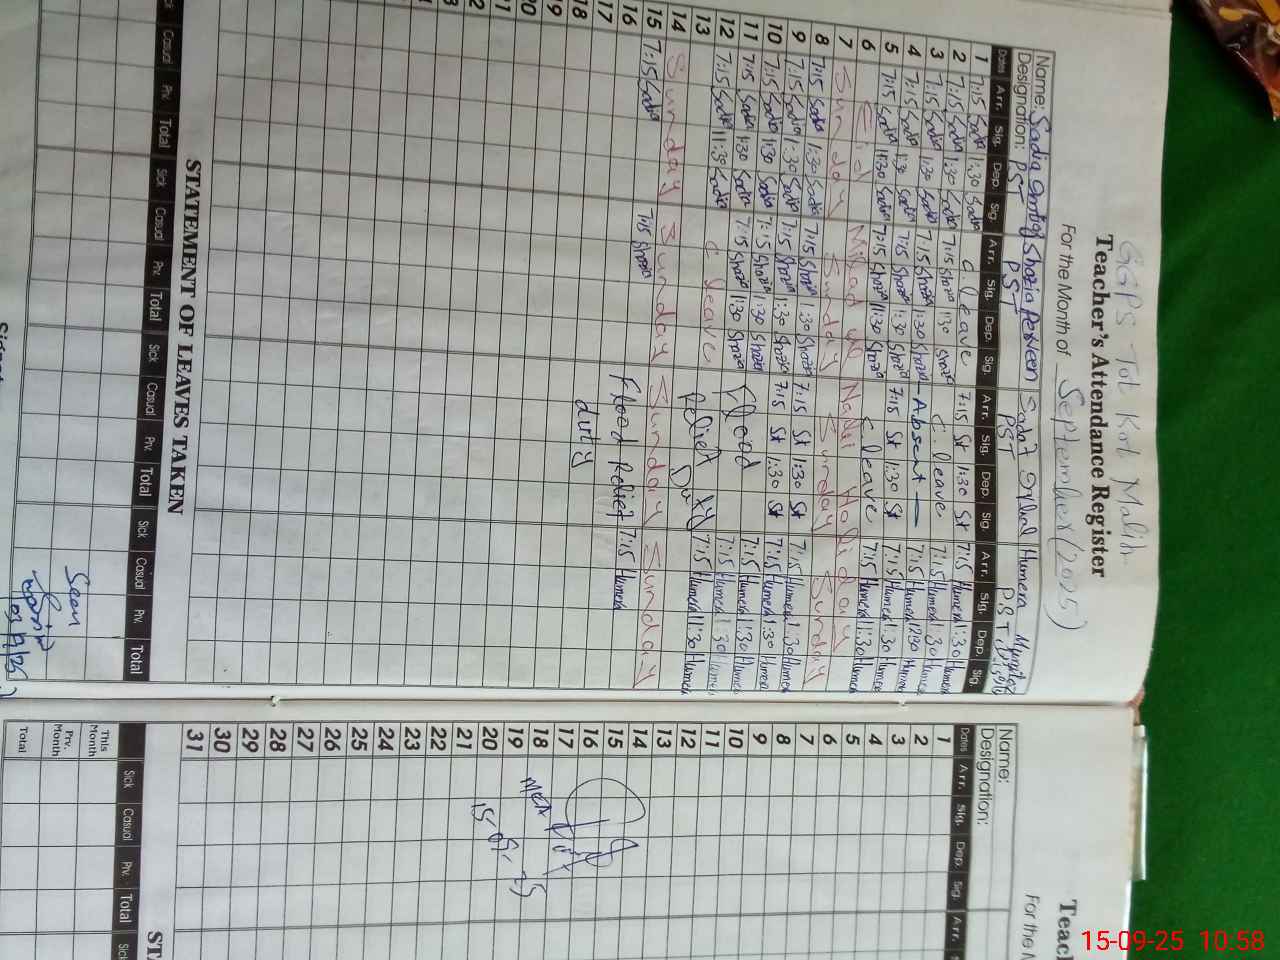 GGPS Tot Kot Malik
Teacher's Attendance Register
For the Month of September (2025)
Name: Sadia Shazia Perveen Sadaf Humera Mumtaz
Designation: PST PST PST P.S.T
Dates Arr. Sig. Dep. Sig. Arr. Sig. Dep. Sig. Arr. Sig. Dep. Sig. Arr. Sig. Dep. Sig.
1 7:15 Sadia 1:30 Sadia C. leave 7:15 St 1:30 St 7:15 Humera 1:30 Humera
2 7:15 Sadia 1:30 Sadia 7:15 Shazia 1:30 Shazia C. leave 7:15 Humera 1:30 Humera
3 7:15 Sadia 1:30 Sadia 7:15 Shazia 1:30 Shazia - Absent - 7:15 Humera 12:30 Humera
4 7:15 Sadia 1:30 Sadia 7:15 Shazia 1:30 Shazia 7:15 St 1:30 St 7:15 Humera 1:30 Humera
5 7:15 Sadia 11:30 Sadia 7:15 Shazia 11:30 Shazia C leave 7:15 Humera 11:30 Humera
6 Eid Milad un Nabi Holiday
7 Sunday Sunday Sunday Sunday
8 7:15 Sadia 1:30 Sadia 7:15 Shazia 1:30 Shazia 7:15 St 1:30 St 7:15 Humera 1:30 Humera
9 7:15 Sadia 1:30 Sadia 7:15 Shazia 1:30 Shazia 7:15 St 1:30 St 7:15 Humera 1:30 Humera
10 7:15 Sadia 1:30 Sadia 7:15 Shazia 1:30 Shazia 7:15 Humera 1:30 Humera
11 7:15 Sadia 1:30 Sadia 7:15 Shazia 1:30 Shazia Flood 7:15 Humera 1:30 Humera
12 7:15 Sadia 11:30 Sadia C leave Relief Duty 7:15 Humera 11:30 Humera
13
14 Sunday Sunday Sunday Sunday
15 7:15 Sadia 7:15 Shazia Flood Relief 7:15 Humera
16 duty
17
18
19
20
STATEMENT OF LEAVES TAKEN
Casual Prv. Total Sick Casual Prv. Total Sick Casual Prv. Total Sick Casual Prv. Total
Seen
Name:
Designation:
For the
Dates Arr. Sig. Dep. Sig. Arr.
1
2
3
4
5
6
7
8
9
10
11
12
13
14
15
16
17
18
19
20
21
22
23
24
25
26
27
28
29
30
31
MEA
15-09-25
Sick Casual Prv. Total Sick
This Month
Prv. Month
Total
15-09-25 10:58